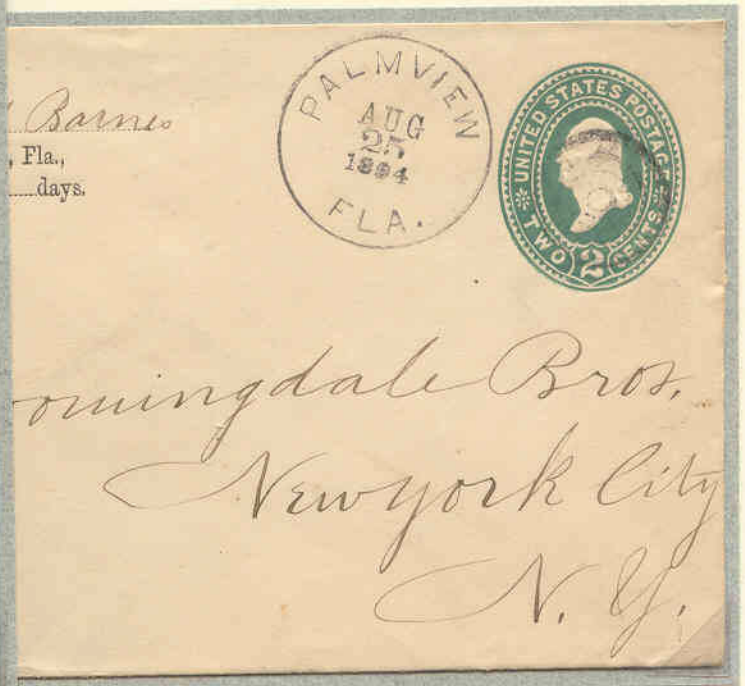 Barnes
, Fla.,
days.
PALMVIEW
AUG
25
1894
FLA.
UNITED STATES POSTAGE
TWO 2 CENTS
omingdale Bros.
New York City
N. Y.